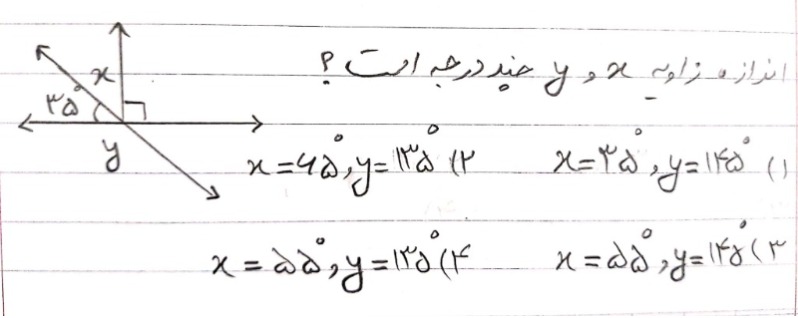 اندازه زاویه x و y چند درجه است ؟
x
۳۵°
y
x=۳۵° , y=۱۴۵° (۱
x=۶۵° , y=۱۳۵° (۲
x=۵۵° , y=۱۴۵° (۳
x=۵۵° , y=۱۳۵° (۴